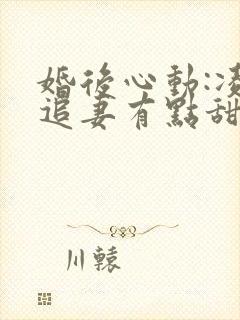 婚後心動:凌
追妻有點甜
川轅